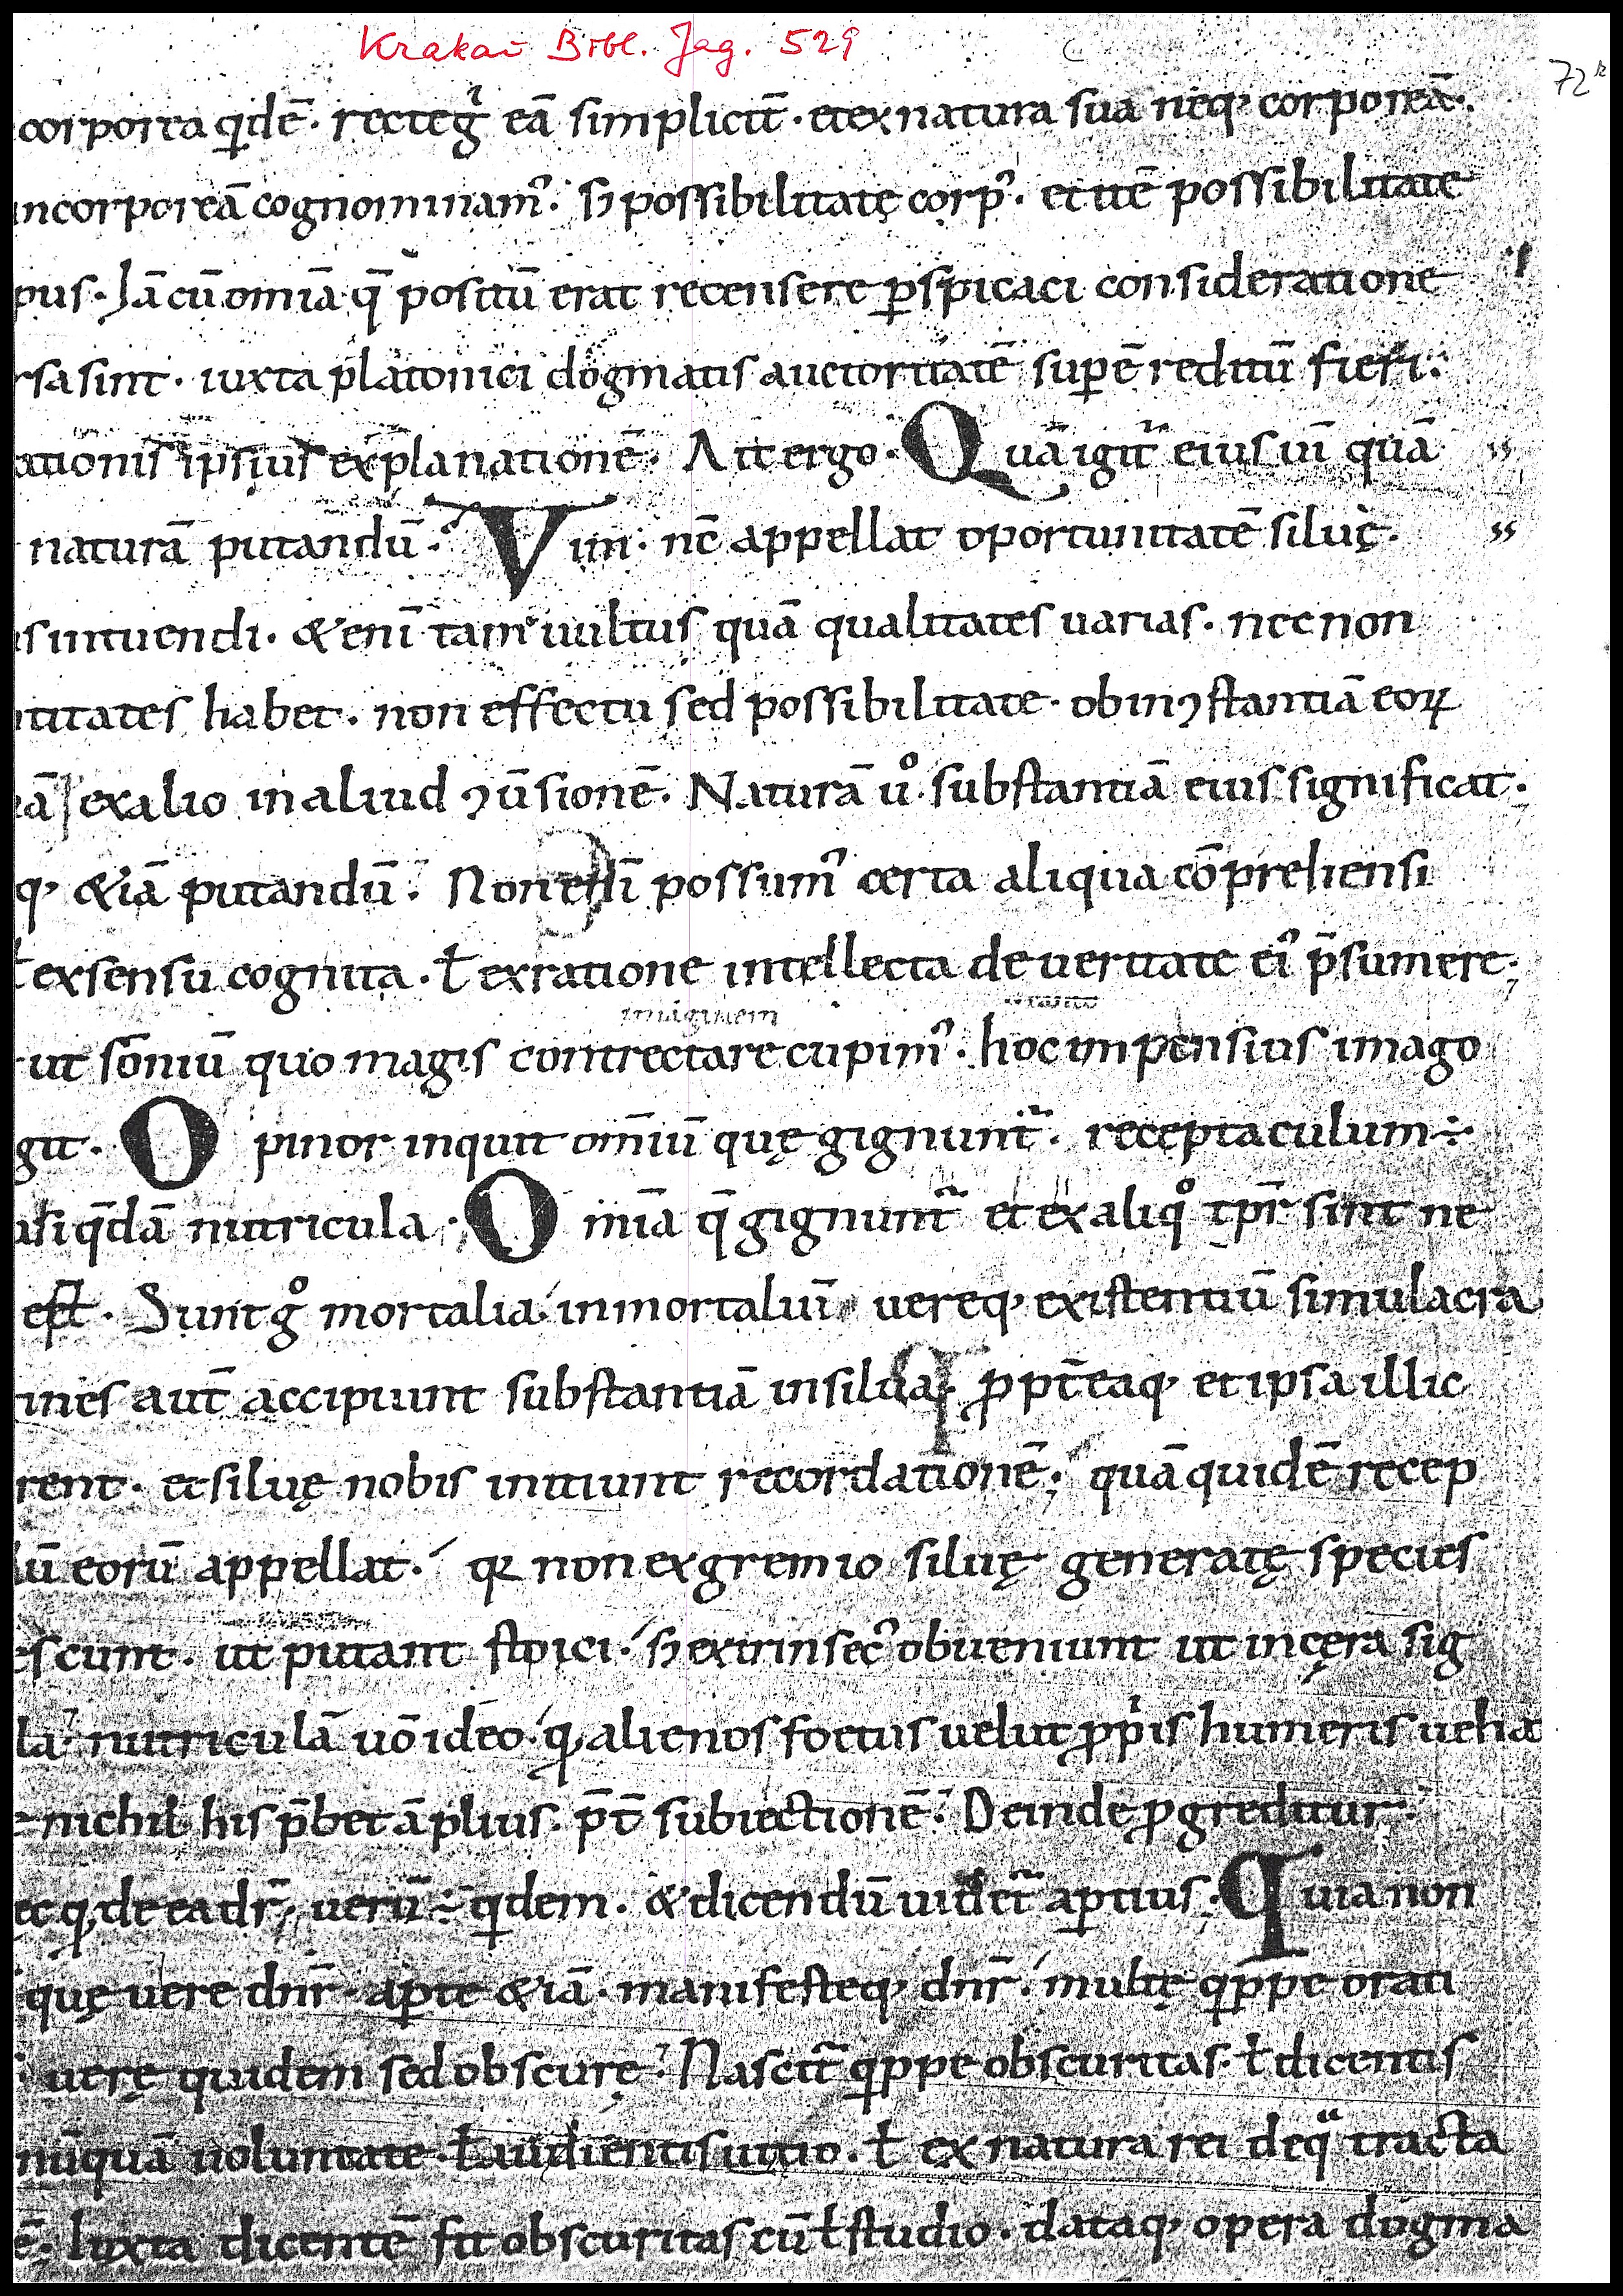 Krakau Bibl. Jag. 529
72r
corporea qidē· recteg̓ eā simplicit̄· etex natura sua neq; corporeā·
incorporeā cognominam᾽· sꝫ possibilitatę corp᾽· et itē possibilitate
pus· Iā cū om̄ia q̄ positū erat recensere ꝑspicaci consideratione
rsa sint· iuxta platonici dogmatis auctoritatē supē reditū fieri·
ationis ipsius explanationē· Ait ergo· Quā igit᷑ eius uī quā
naturā putandū· Vim nc̄ appellat oportunitatē siluę·
s intuendi· & eni᷑ tam uultus quā qualitates uarias· nec non
ntitates habet· non effectu sed possibilitate· ob inꝯstantiā eoꝝ
eā exalio in aliud ꝯūsionē· Naturā uº substantiā eius significat·
q; &iā putandū· Non eni᷑ possum᾽ certa aliqua cōprehensi
ł ex sensu cognita· ł exratione intellecta de ueritate ei᾽ p̄sumere·
imaginem tanto
ut sōniū quo magis contrectare cupim᾽· hoc impensius imago
git· Opinor inquit om̄iū quę gignunt᷑· receptaculum ÷·
asi q̄dā nutricula· Om̄ia q̄ gignunt᷑ et ex aliqº tp̄r sint ne
est· Sunt gº mortalia· inmortaliū uereq; existentiū simulacra
ines aut̄ accipiunt substantiā in silua· ꝓpt̄eaq; et ipsa illic
rent· et siluę nobis initiunt recordationē· quā quidē recep
lū eorū appellat· qꝛ non ex gremio siluę generatę species
escunt· ut putant stoici· sꝫ extrinsec᾽ obueniunt ut incęra sig
la· nutriculā uō ideo· qꝫ alienos foetus uelut ꝓpiis humeris ueha
e nichil his p̄bet āplius· p̄t̄ subiectionē· Deinde ꝓgreditur·
ec qꝫ de ea dr̄· uerū ÷ qidem· & dicendū uidet᷑ aꝑtius· Quia non
quę uere dn̄r· aꝑte &iā· manifesteq; dn̄r· multę qippe orati
uerę quidem sed obscurę· Nascit᷑ qippe obscuritas· ł dicentis
nūquā uoluntate· ł audientis uitio· ł ex natura rei deqᵃ tracta
ē· Iuxta dicentē fit obscuritas cū ł studio· dataq; opera dogma